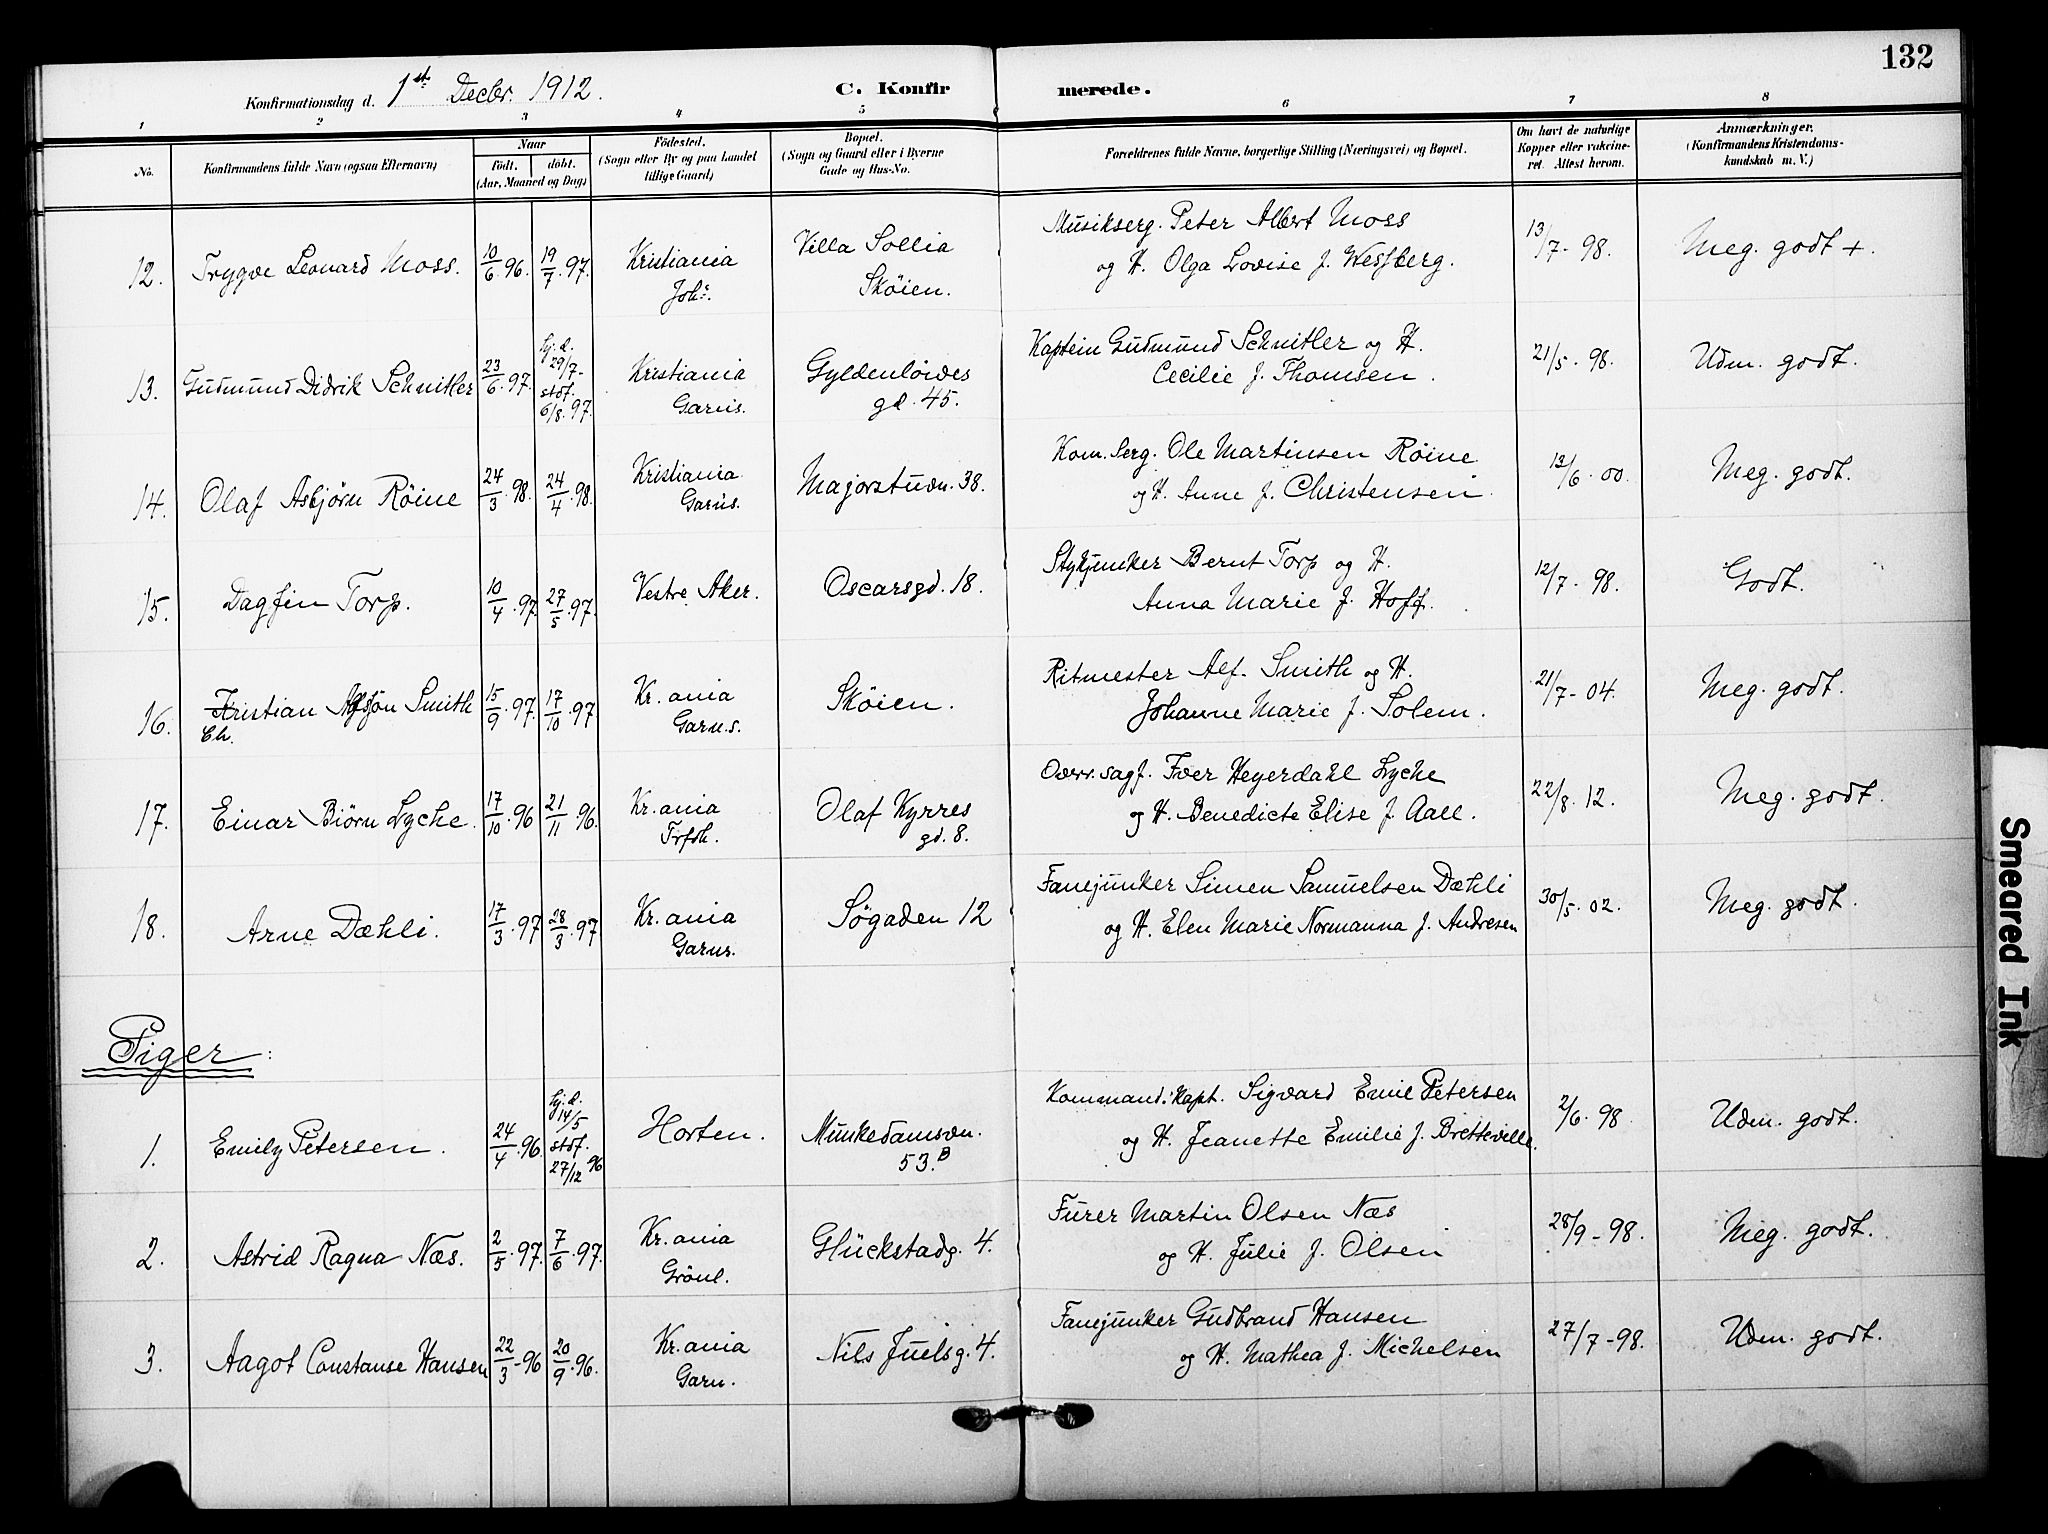 132
Konfirmationsdag d. 1st Decbr. 1912.
C. Konfirmerede.
1 2 3 4 5 6 7 8
No.
Konfirmandens fulde Navn (ogsaa Efternavn)
Naar
födt. döbt.
(Aar, Maaned og Dag)
Födested.
(Sogn eller By og paa Landet
tillige Gaard)
Bopæl.
(Sogn og Gaard eller i Byerne
Gade og Hus-No.
Forældrenes fulde Navne, borgerlige Stilling (Næringsvei) og Bopæl.
Om havt de naturlige
Kopper eller vakcine-
ret. Attest herom.
Anmærkninger.
(Konfirmandens Kristendoms-
kundskab m. V.)
12. Trygve Leonard Moss. 10/6.96. 19/7.97. Kristiania Joh.s. Villa Sollia Skøien. Musikserg. Peter Albert Moss og H. Olga Lovise f. Wessberg. 13/7-98. Meg. godt +.
13. Gudmund Didrik Schnitler 23/6.97. hj. d. 29/7- stdf. 6/8.97. Kristiania Garnis. Gyldenløves gd. 45. Kaptein Gudmund Schnitler og H. Cecilie f. Thomsen. 21/5.98. Udm. godt.
14. Olaf Asbjørn Röine 24/3.98. 24/4.98. Kristiania Garnis. Majorstuvn. 38. Kom. Serg. Ole Martinsen Röine og H. Anne f. Christensen. 13/6.00. Meg. godt.
15. Dagfin Torp. 10/4.97. 27/5.97. Vestre Aker. Oscarsgd. 18. Stykjunker Bernt Torp og H. Anna Marie f. Hoff. 12/7-98. Godt.
16. Kristian Smith Ch. 15/9.97. 17/10.97 Kr.ania Garn.s. Skøien. Ritmester Alf. Smith og H. Johanne Marie f. Solem. 21/7-04. Meg. godt.
17. Einar Biörn Lyche. 17/10.96 21/11.96. Kr.ania Trfsh. Olaf Kyrres gd. 8. Overr.sagf. Iver Heyerdahl Lyche og H. Benedicte Elise f. Aall. 22/8.12. Meg. godt.
18. Arne Dæhli. 17/3.97 28/3.97 Kr.ania Garns. Søgaden 12 Fanejunker Simen Samuelsen Dæhli og H. Elen Marie Normanna f. Andresen 30/5.02. Meg. godt.
Piger:
1. Emily Petersen. 24/4.96. hj. d. 14/5 stdf. 27/12 96 Horten. Munkedamsvn. 53.B Kommand.kapt. Sigvard Emil Petersen og H. Jeanette Emilie f. Bretteville. 2/6.98. Udm. godt.
2. Astrid Ragna Næs. 2/5.97. 7/6.97. Kr.ania Grönl. Glückstadg. 4. Furer Martin Olsen Næs og H. Julie f. Olsen 28/9-98. Meg. godt.
3. Aagot Constanse Hansen 22/3-96 20/9.96. Kr.ania Garn. Nils Juelsg. 4. Fanejunker Gudbrand Hansen og H. Mathea f. Michelsen 27/7-98. Udm. godt.
Smeared Ink